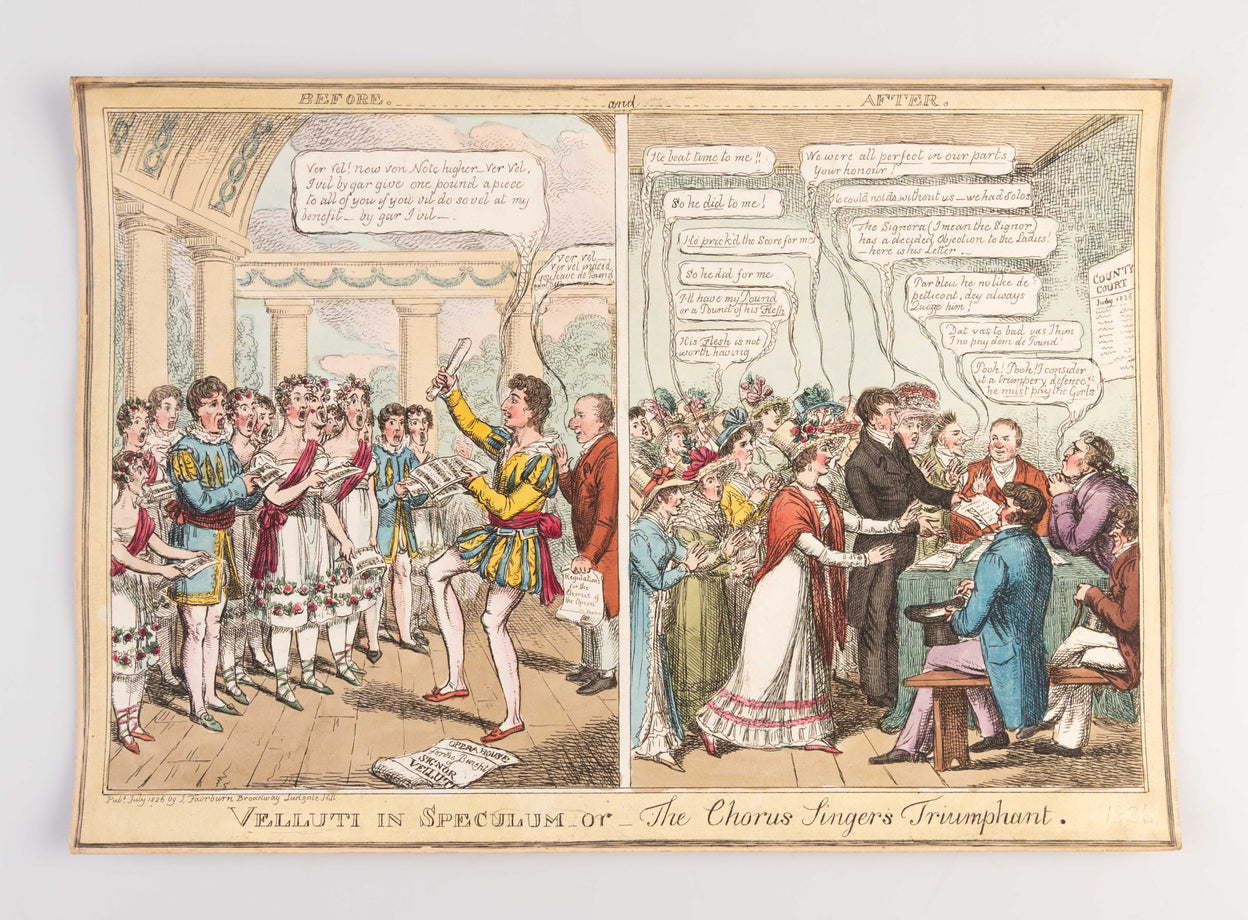 BEFORE. and AFTER.
Ver Vel! now von Note higher - Ver Vel,
I vil by gar give one pound apiece
to all of you if you vil do so vel at my
benefit - by gar I vil -.
Ver vel -
Ver vel indeed
you have de Sound
Regulations
for the
Chorus of
the Opera
OPERA HOUSE
for the Benefit
SIGNOR
VELLUTI
He beat time to me!!
So he did to me!
He prick'd the Score for me!
So he did for me
I'll have my Pound
or a Pound of his Flesh
His Flesh is not
worth having
We were all perfect in our parts
Your honour!
He could not do without us - we had Solos
The Signora (I mean the Signor
has a decided Objection to the Ladies!
here is his Letter.
Parbleu he no like de
petticoat, dey always
Quize him!
Dat vas to bad vas Thim
I no pay dem de Pound
Pooh! Pooh! I consider
it a trumpery defence!
he must pay the Girls
COUNTY
COURT
July 1826
Pubd. July 1826 by J. Fairburn Broadway Ludgate Hill
VELLUTI IN SPECULUM - or - The Chorus Singers Triumphant.
1826